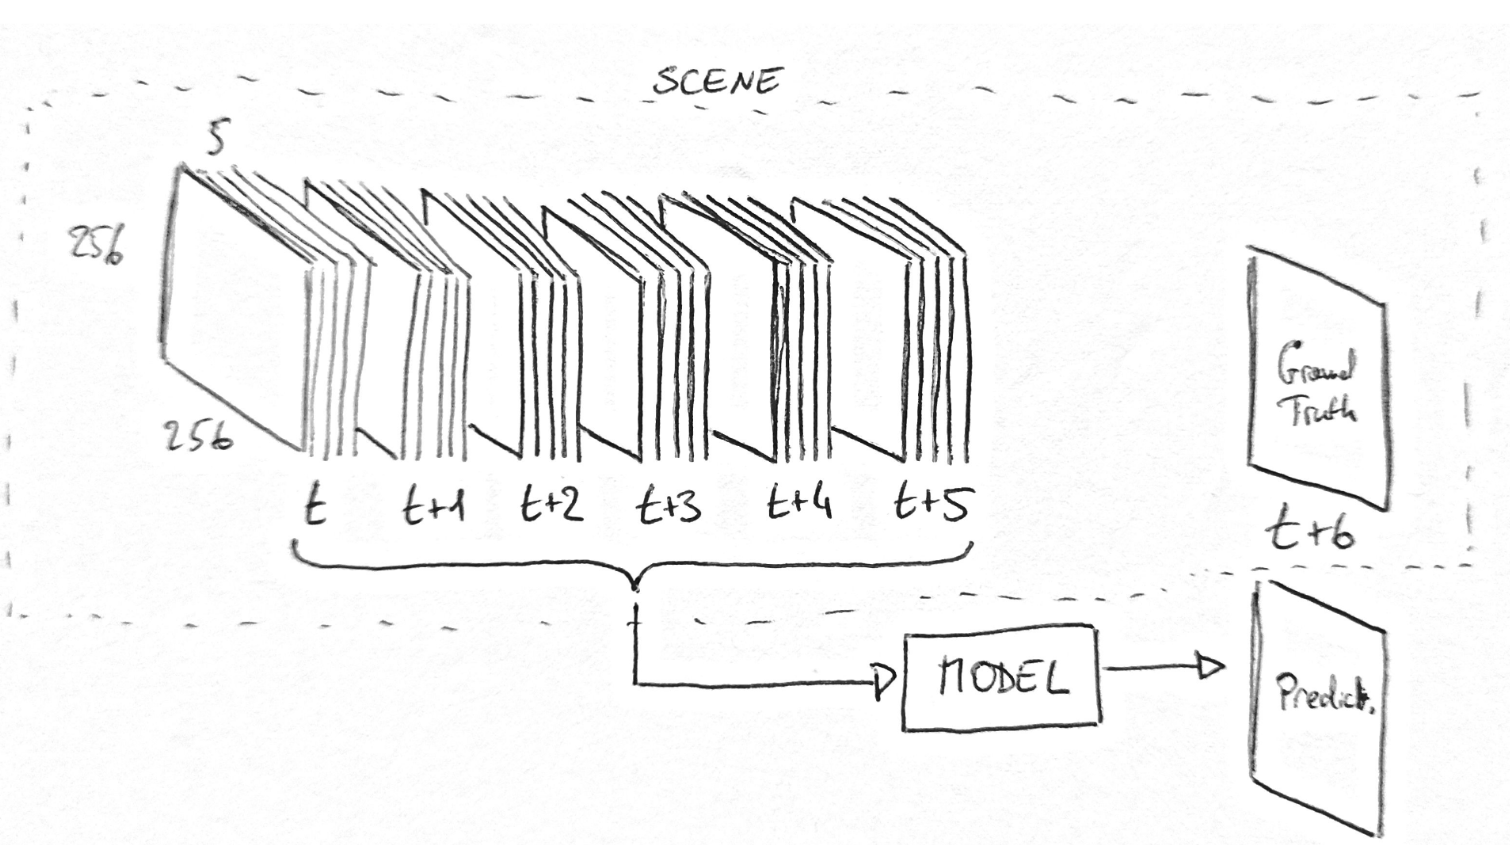 SCENE
5
256
256
t
t+1
t+2
t+3
t+4
t+5
Ground
Truth
t+6
MODEL
Predict.